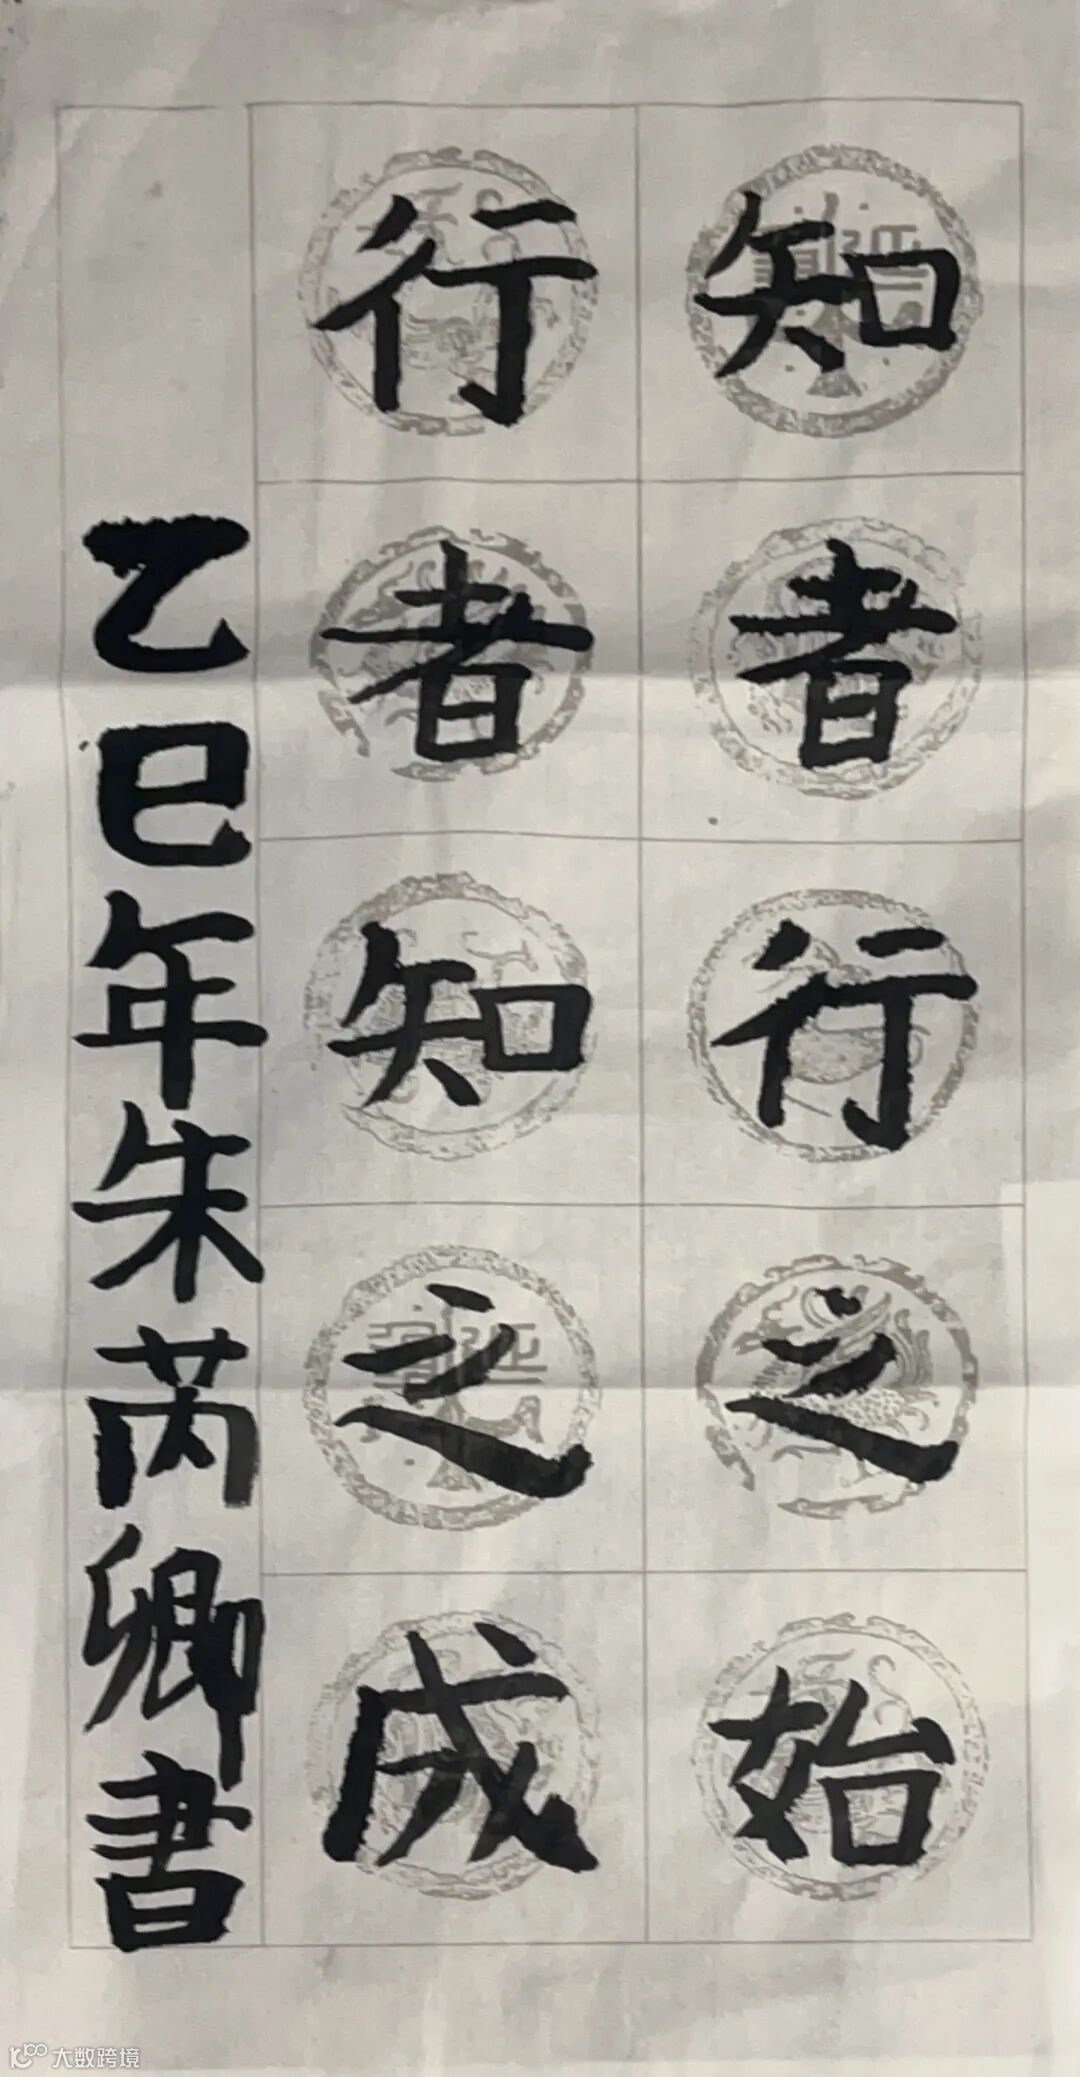 知者行之始
行者知之成
乙巳年朱芮卿書
大数跨境